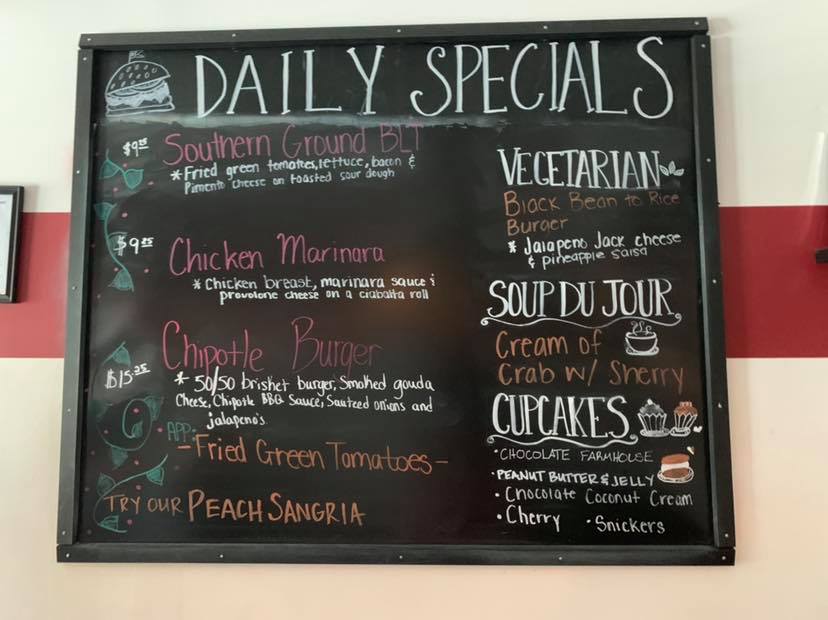 DAILY SPECIALS
$9.25 Southern Ground BLT
* Fried green tomatoes, lettuce, bacon &
Pimento cheese on toasted sour dough
$9.25 Chicken Marinara
* Chicken breast, marinara sauce &
provolone cheese on a ciabatta roll
Chipotle Burger
$15.25 * 50/50 brisket burger, Smoked gouda
Cheese, Chipotle BBQ Sauce, Sauteed onions and
jalapeno's
APP:
- Fried Green Tomatoes -
TRY OUR PEACH SANGRIA
VEGETARIAN
Black Bean to Rice
Burger
* Jalapeno Jack cheese
& pineapple salsa
SOUP DU JOUR
Cream of
Crab w/ Sherry
CUPCAKES
• CHOCOLATE FARMHOUSE
• PEANUT BUTTER & JELLY
• Chocolate Coconut Cream
• Cherry • Snickers